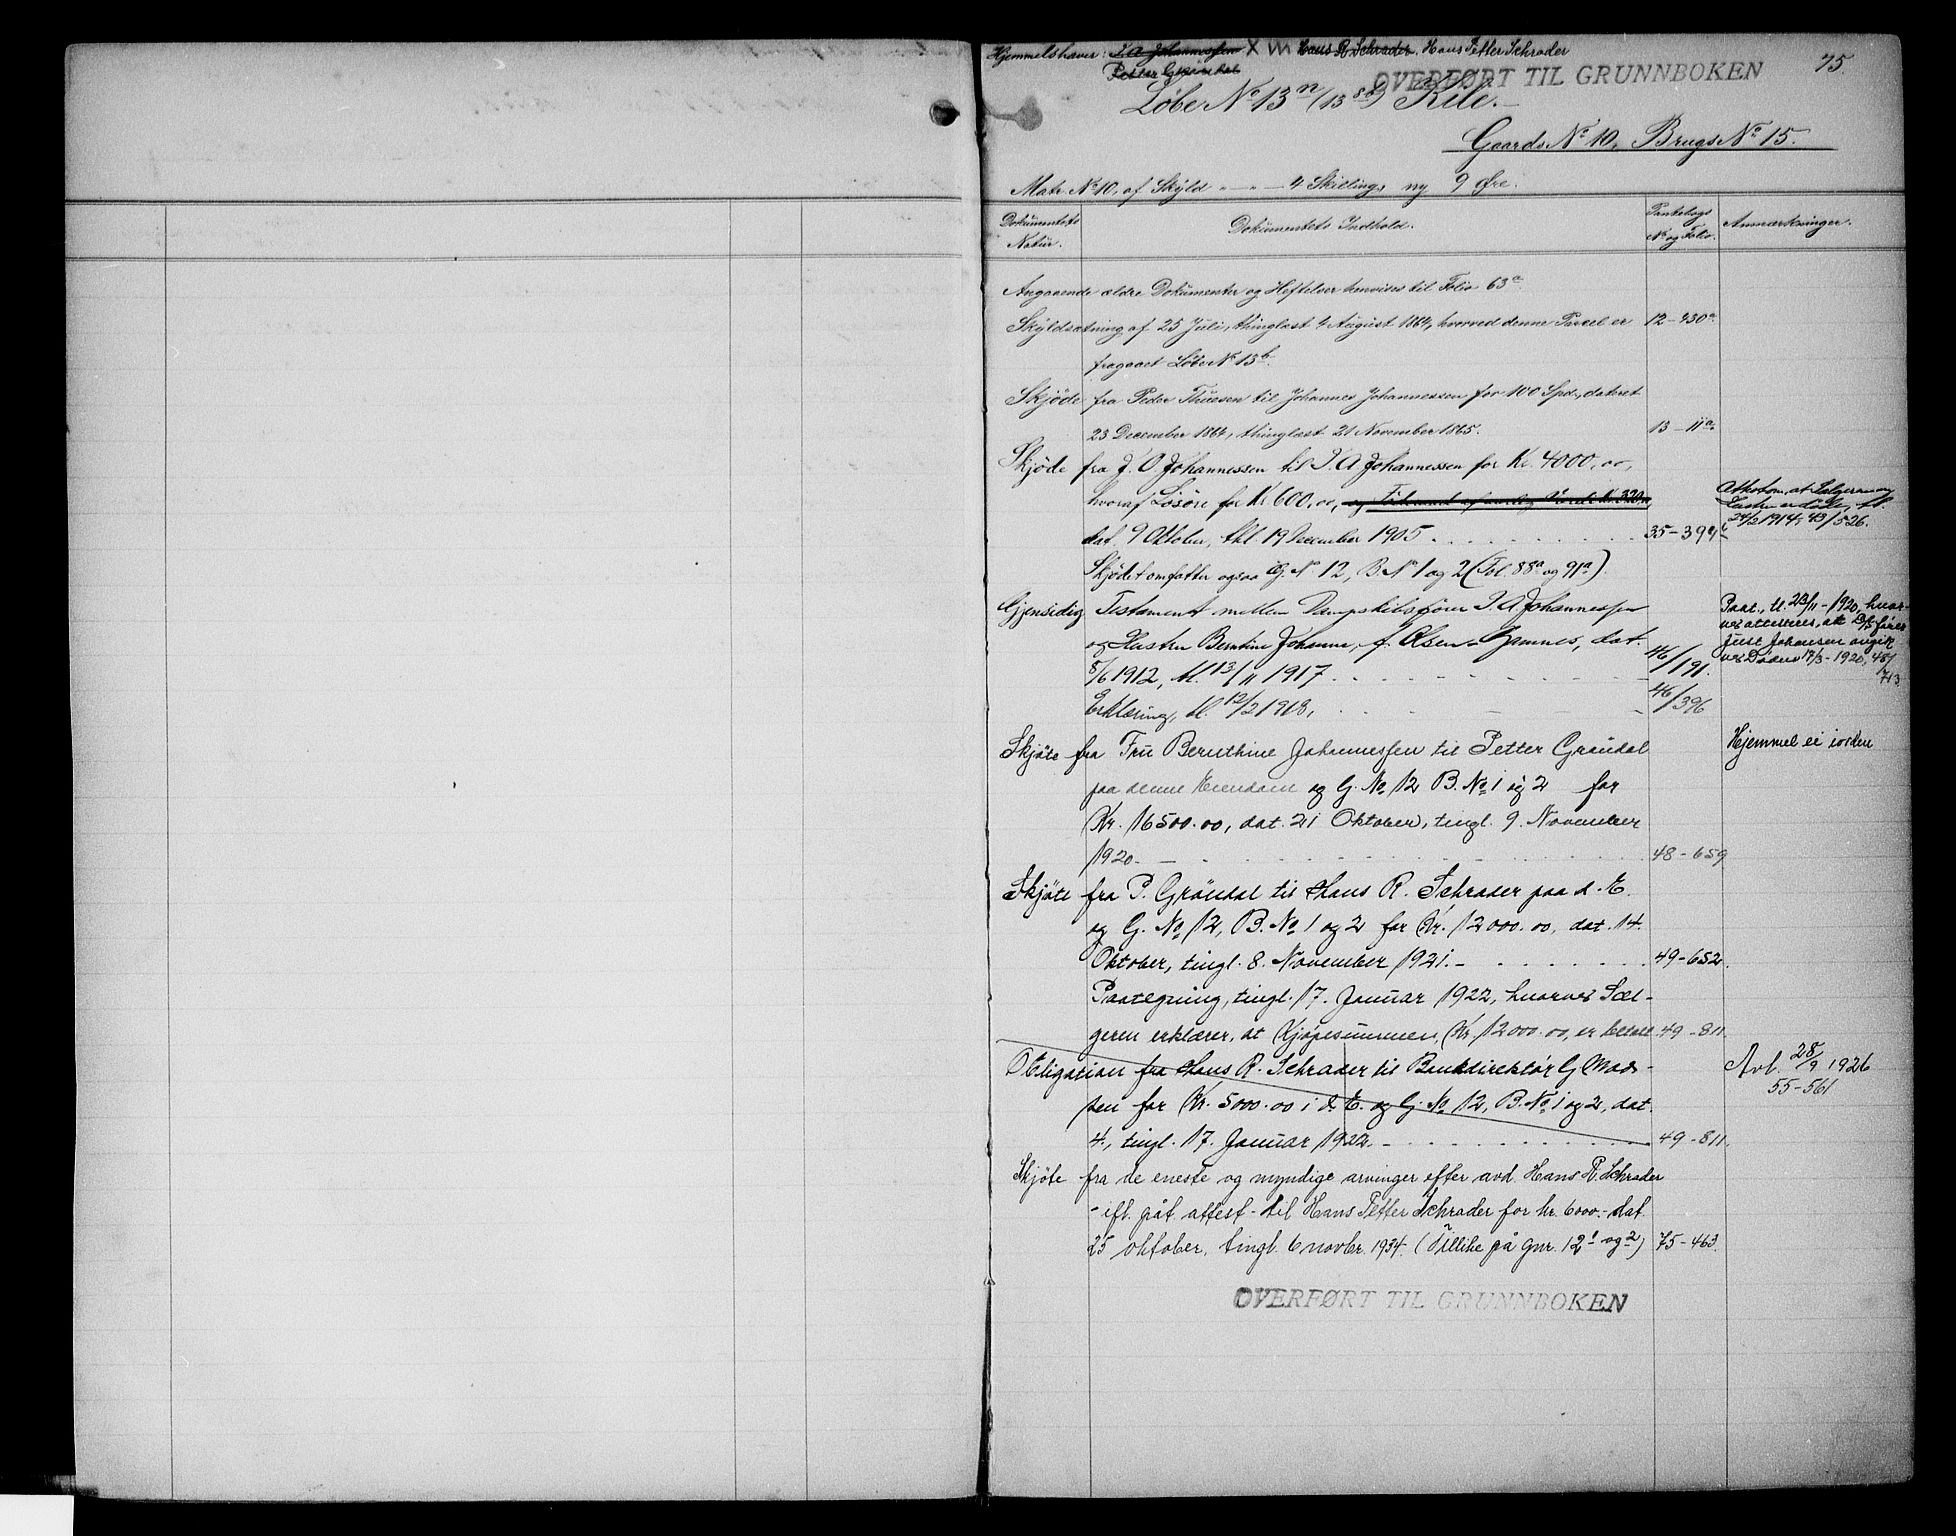 Hjemmelshaver: I A Johannessen X Hans R. Schrader. Hans Petter Schrader
Petter Gröndal
OVERFØRT TIL GRUNNBOKEN
75.
Løbe No 13n (13 ) Rile.
Gaards No 10, Brugs No 15.
Matr. No 10, af Skyld " — " — 4 Skilling, ny 9 Øre.
Dokumentets Natur.
Dokumentets Indhold.
Pantebogs No og Folio.
Anmærkninger.
Angaaende ældre Dokumenter og Heftelser henvises til Folio 63a.
Skyldsætning af 25 Juli, thinglæst 4 August 1864, hvorved denne Parcel er 12-430a.
fragaaet Løbe No 13b.
Skjøde fra Peder Thuesen til Johannes Johannessen for 100 Spd., dateret
23 December 1864, thinglæst 21 November 1865. 13-11a.
Skjøde fra J. O. Johannessen til I. A Johannessen for Kr. 4000,00,
hvoraf Løsöre for Kr 600,00, og af aarlig Værdi Kr. 320,
Attest om, at Sælgeren og Hustru er døde, tl. 24/2 1914, 43/526.
dat 9 Oktober, thl. 19 December 1905 . . . . . . . . . . 35-394b
Skjødet omfatter ogsaa G. No 12, B No 1 og 2 (Fol. 88a og 91a).
Gjensidig Testament mellem Dampskibsfører I A Johannessen
og Hustru Berntine Johanne, f. Olsen Gjemnes, dat.
8/6 1912, tl. 13/11 1917 . . . . . . . . . . 46/191.
Paat., tl. 23/11-1920, hvorved attesteres, at D/s fører Just Johansen avgik ved Døden 17/3-1920, 48/713
Erklæring, tl. 12/2 1918, . . . . 46/396
Skjøte fra Fru Bernthine Johannessen til Petter Gröndal
Hjemmel ei iorden
paa denne Eiendom og G. No 12 B. No 1 og 2 for
Kr. 16500.00, dat. 21 Oktober, tingl. 9. November
1920. — . . . . . . . . . . 48-659
Skjøte fra P. Gröndal til Hans R. Schrader paa d. E.
og G. No 12, B. No 1 og 2 for Kr. 12000.00, dat. 14.
Oktober, tingl. 8. November 1921. — . . . . . . . 49-652.
Paategning, tingl. 17. Januar 1922, hvorved Sæl-
geren erklærer, at Kjøpesummen, Kr. 12000.00, er betalt. 49-811.
Obligation fra Hans R. Schrader til Bankdirektör G. Mad-
Avl. 28/9 1926
55-561
sen for Kr. 5000.00 i d. E. og G. No 12, B. No 1 og 2, dat.
4., tingl. 17. Januar 1922. — . . . . . . . . . . 49-811.
Skjøte fra de eneste og myndige arvinger efter avd. Hans R. Schrader
- ift. påt. attest - til Hans Petter Schrader for kr. 6000.- dat.
25 oktober, tingl. 6 novbr. 1934. (Tillike på gnr. 12 1 og 2) 75-463.
OVERFØRT TIL GRUNNBOKEN